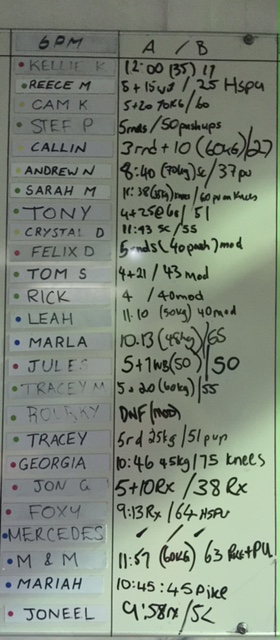 6PM A / B
KELLIE K 12:00 (35) 17
REECE M 5+15 / 25 Hspu
CAM K 5+20 70KG / 60
STEF P 5rnds / 50 pushups
CALLIN 3rnd + 10 (60kg) / 27
ANDREW N 8:40 (70kg) sc / 37 pu
SARAH M 11:38 (35kg) / 60 pu on knees
TONY 4+25@60 / 51
CRYSTAL D 11:43 sc / 55
FELIX D 5rnds (40push) mod
TOM S 4+21 / 43 mod
RICK 4 / 40mod
LEAH 11.10 (50kg) 40 mod
MARLA 10.13 (48kg) / 65
JULES 5+7WB(50) / 50
TRACEY M 5+20 (60kg) / 55
DNF (mod)
TRACEY 5rd 25kg / 51 pup
GEORGIA 10:46 45kg / 75 knees
JON G 5+10Rx / 38 Rx
FOXY 9:13 Rx / 64 HSPU
MERCEDES
M & M 11:57 (60KG) 63 + PU
MARIAH 10:45 : 45 pike
JONEEL 9:58rx / 52